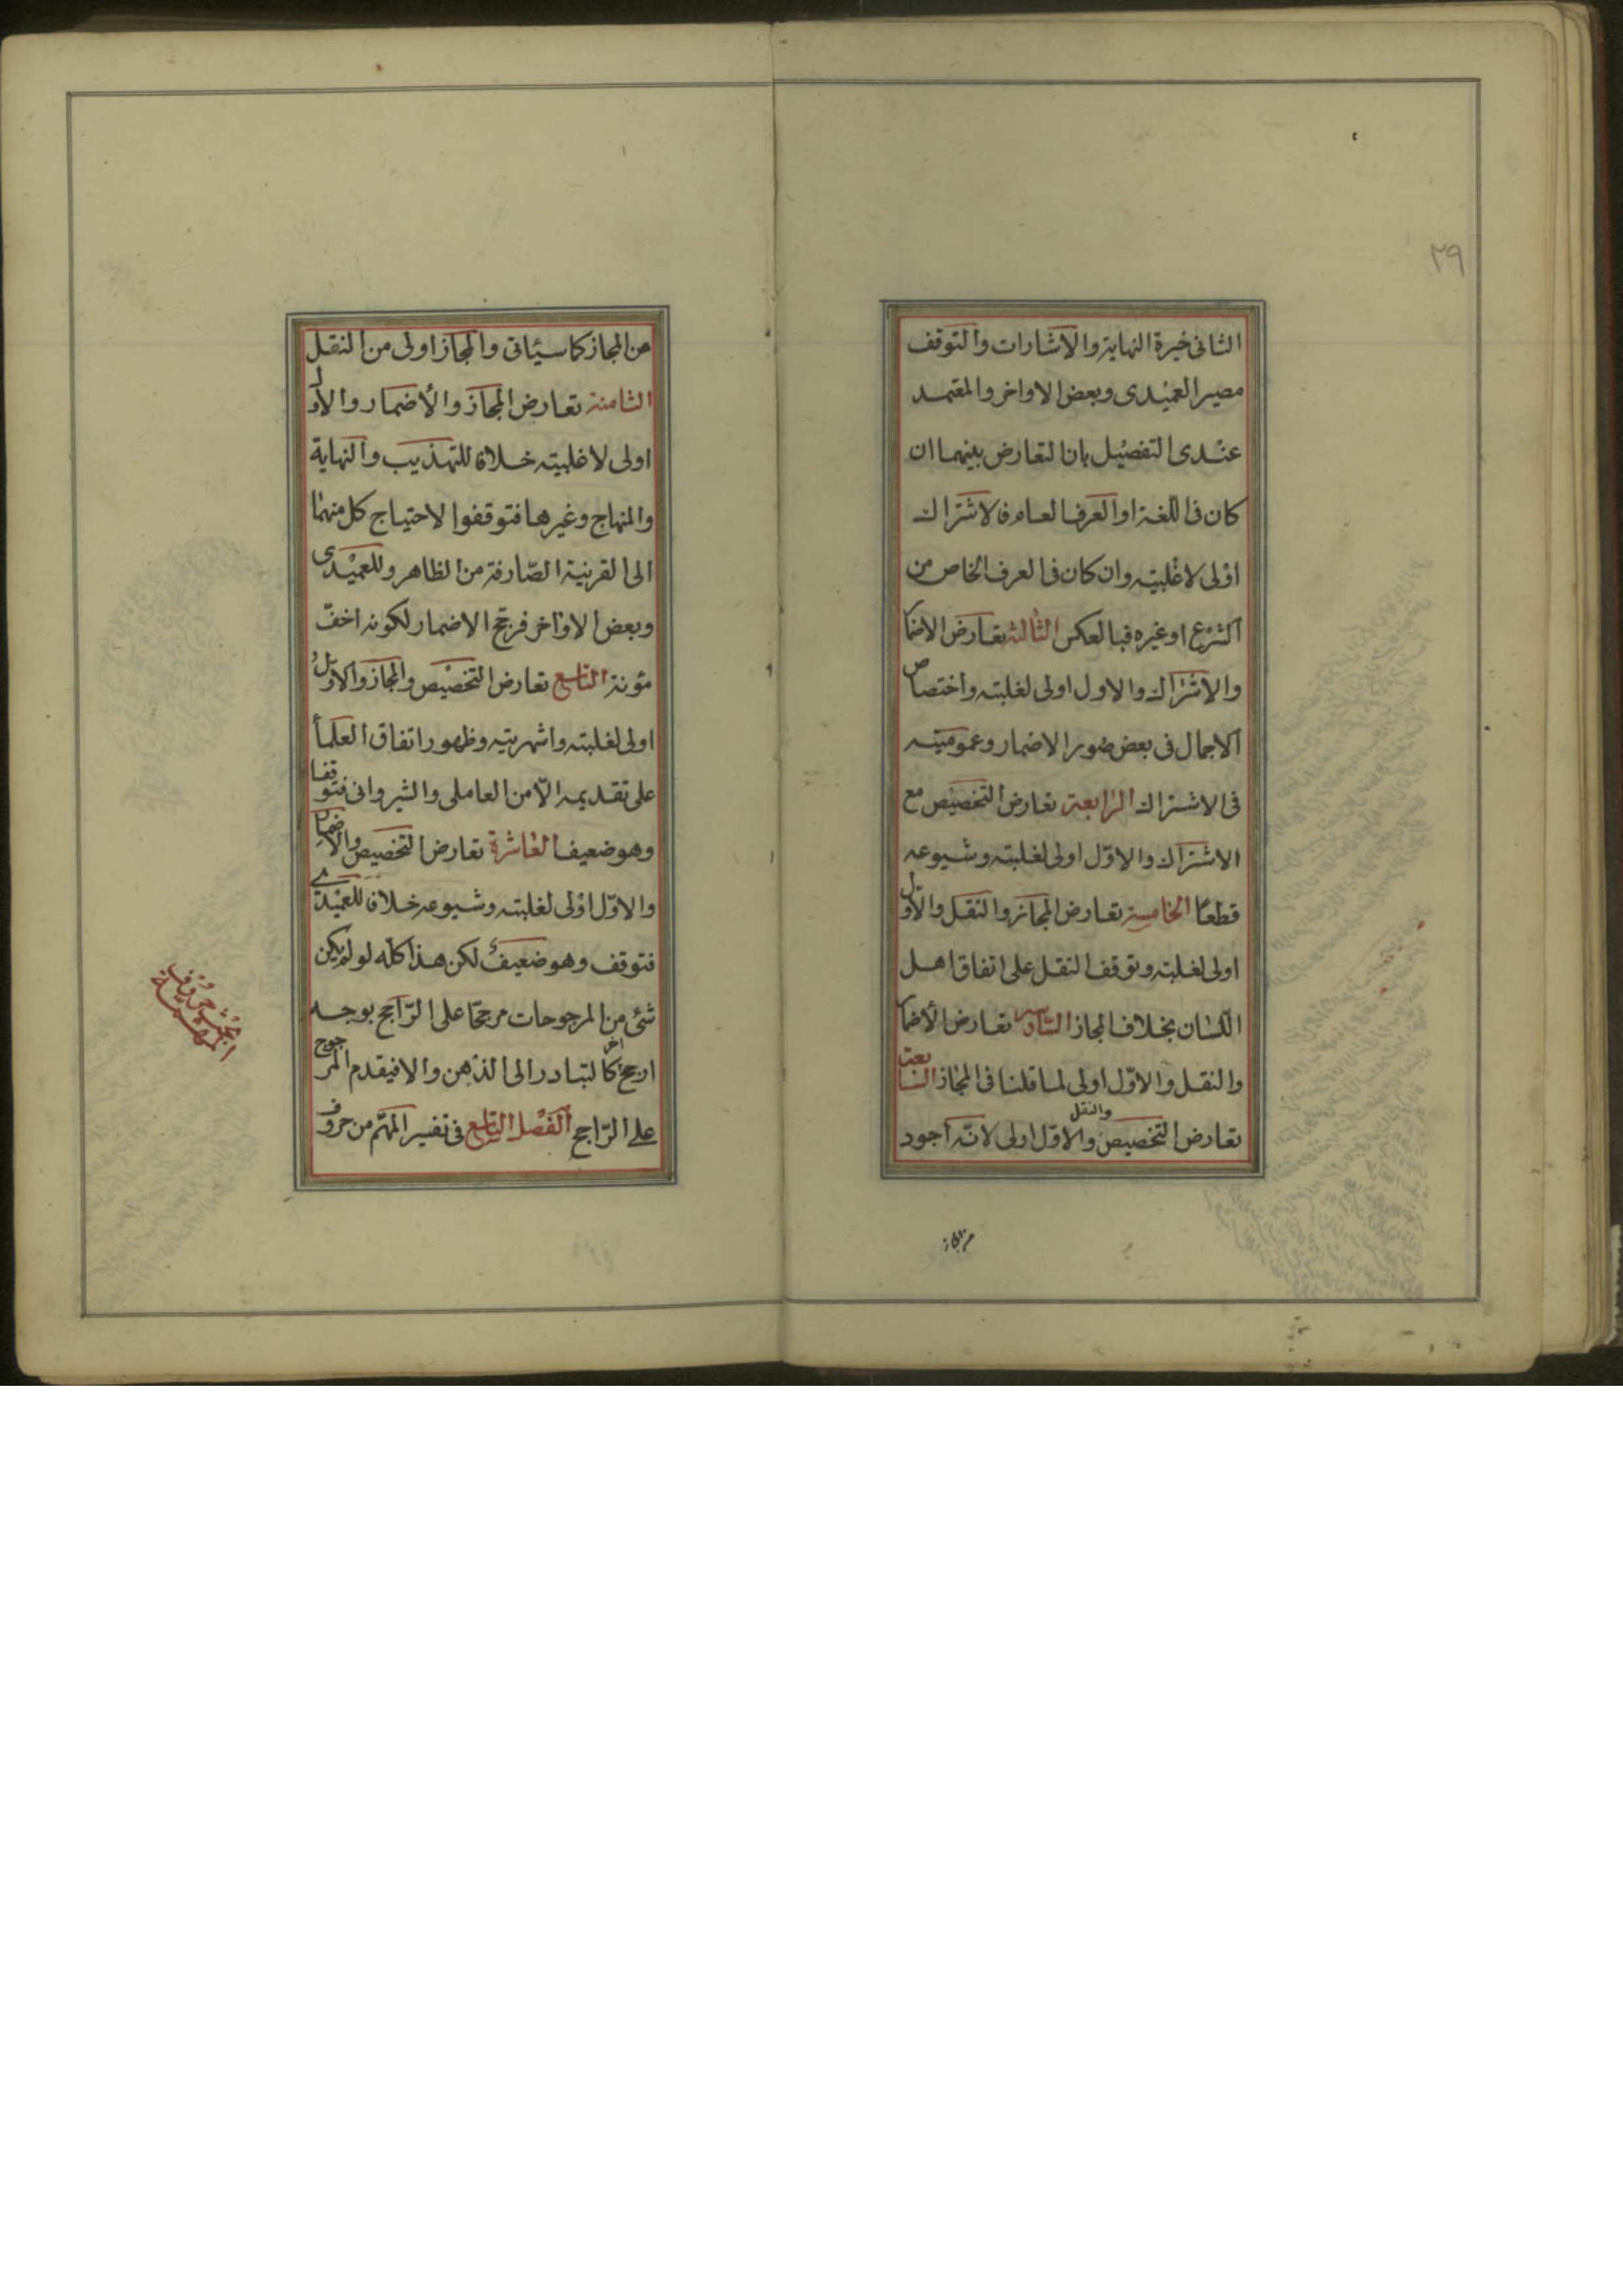 ٢٩
الثانى خيرة النهاية والاشارات والتوقف
مصير العميدى وبعض الاواخر والمعتمد
عندى التفصيل بان التعارض بينهما ان
كان فى اللغة او العرف العام فالاشتراك
اولى لاغلبيته وان كان فى العرف الخاص من
الشرع او غيره فبالعكس الثالثة تعارض الاضمار
والاشتراك والاول اولى لغلبته واختصاص
الاجمال فى بعض صور الاضمار وعموميته
فى الاشتراك الرابعة تعارض التخصيص مع
الاشتراك والاوّل اولى لغلبته وشيوعه
قطعا الخامسة تعارض المجاز والنقل والاول
اولى لغلبته وتوقف النقل على اتفاق اهل
اللسان بخلاف المجاز السادسة تعارض الأضمار
والنقل والاوّل اولى لما قلنا فى المجاز السابعة
تعارض التخصيص والنقل والاوّل اولى لانّه اجود
من المجاز
من المجاز كما سيئاتى والمجاز اولى من النقل
الثامنة تعارض المجاز والأضمار والاول
اولى لاغلبيته خلافا للتهذيب والنهاية
والمنهاج وغيرها فتوقفوا لاحتياج كل منهما
الى القرنية الصّارفة من الظاهر وللعميدى
وبعض الاواخر فرجح الاضمار لكونه اخفّ
مؤنة التاسع تعارض التخصيص والمجاز والاوّل
اولى لغلبته واشهريته وظهور اتفاق العلمأ
على تقديمه الّا من العاملى والشيروانى فتوقفا
وهو ضعيف العاشرة تعارض التخصيص والاضمار
والاوّل اولى لغلبته وشيوعه خلافا للعميدى
فتوقف وهو ضعيف لكن هذا كلّه لو لم يكن
شئ من المرجوحات مرجحّا على الرّاجح بوجه
ارجح آخر كالتبادر الى الذهن والا فيقدم المرجوح
على الرّاجح الفصل التاسع فى تفسير المهّم من حروف